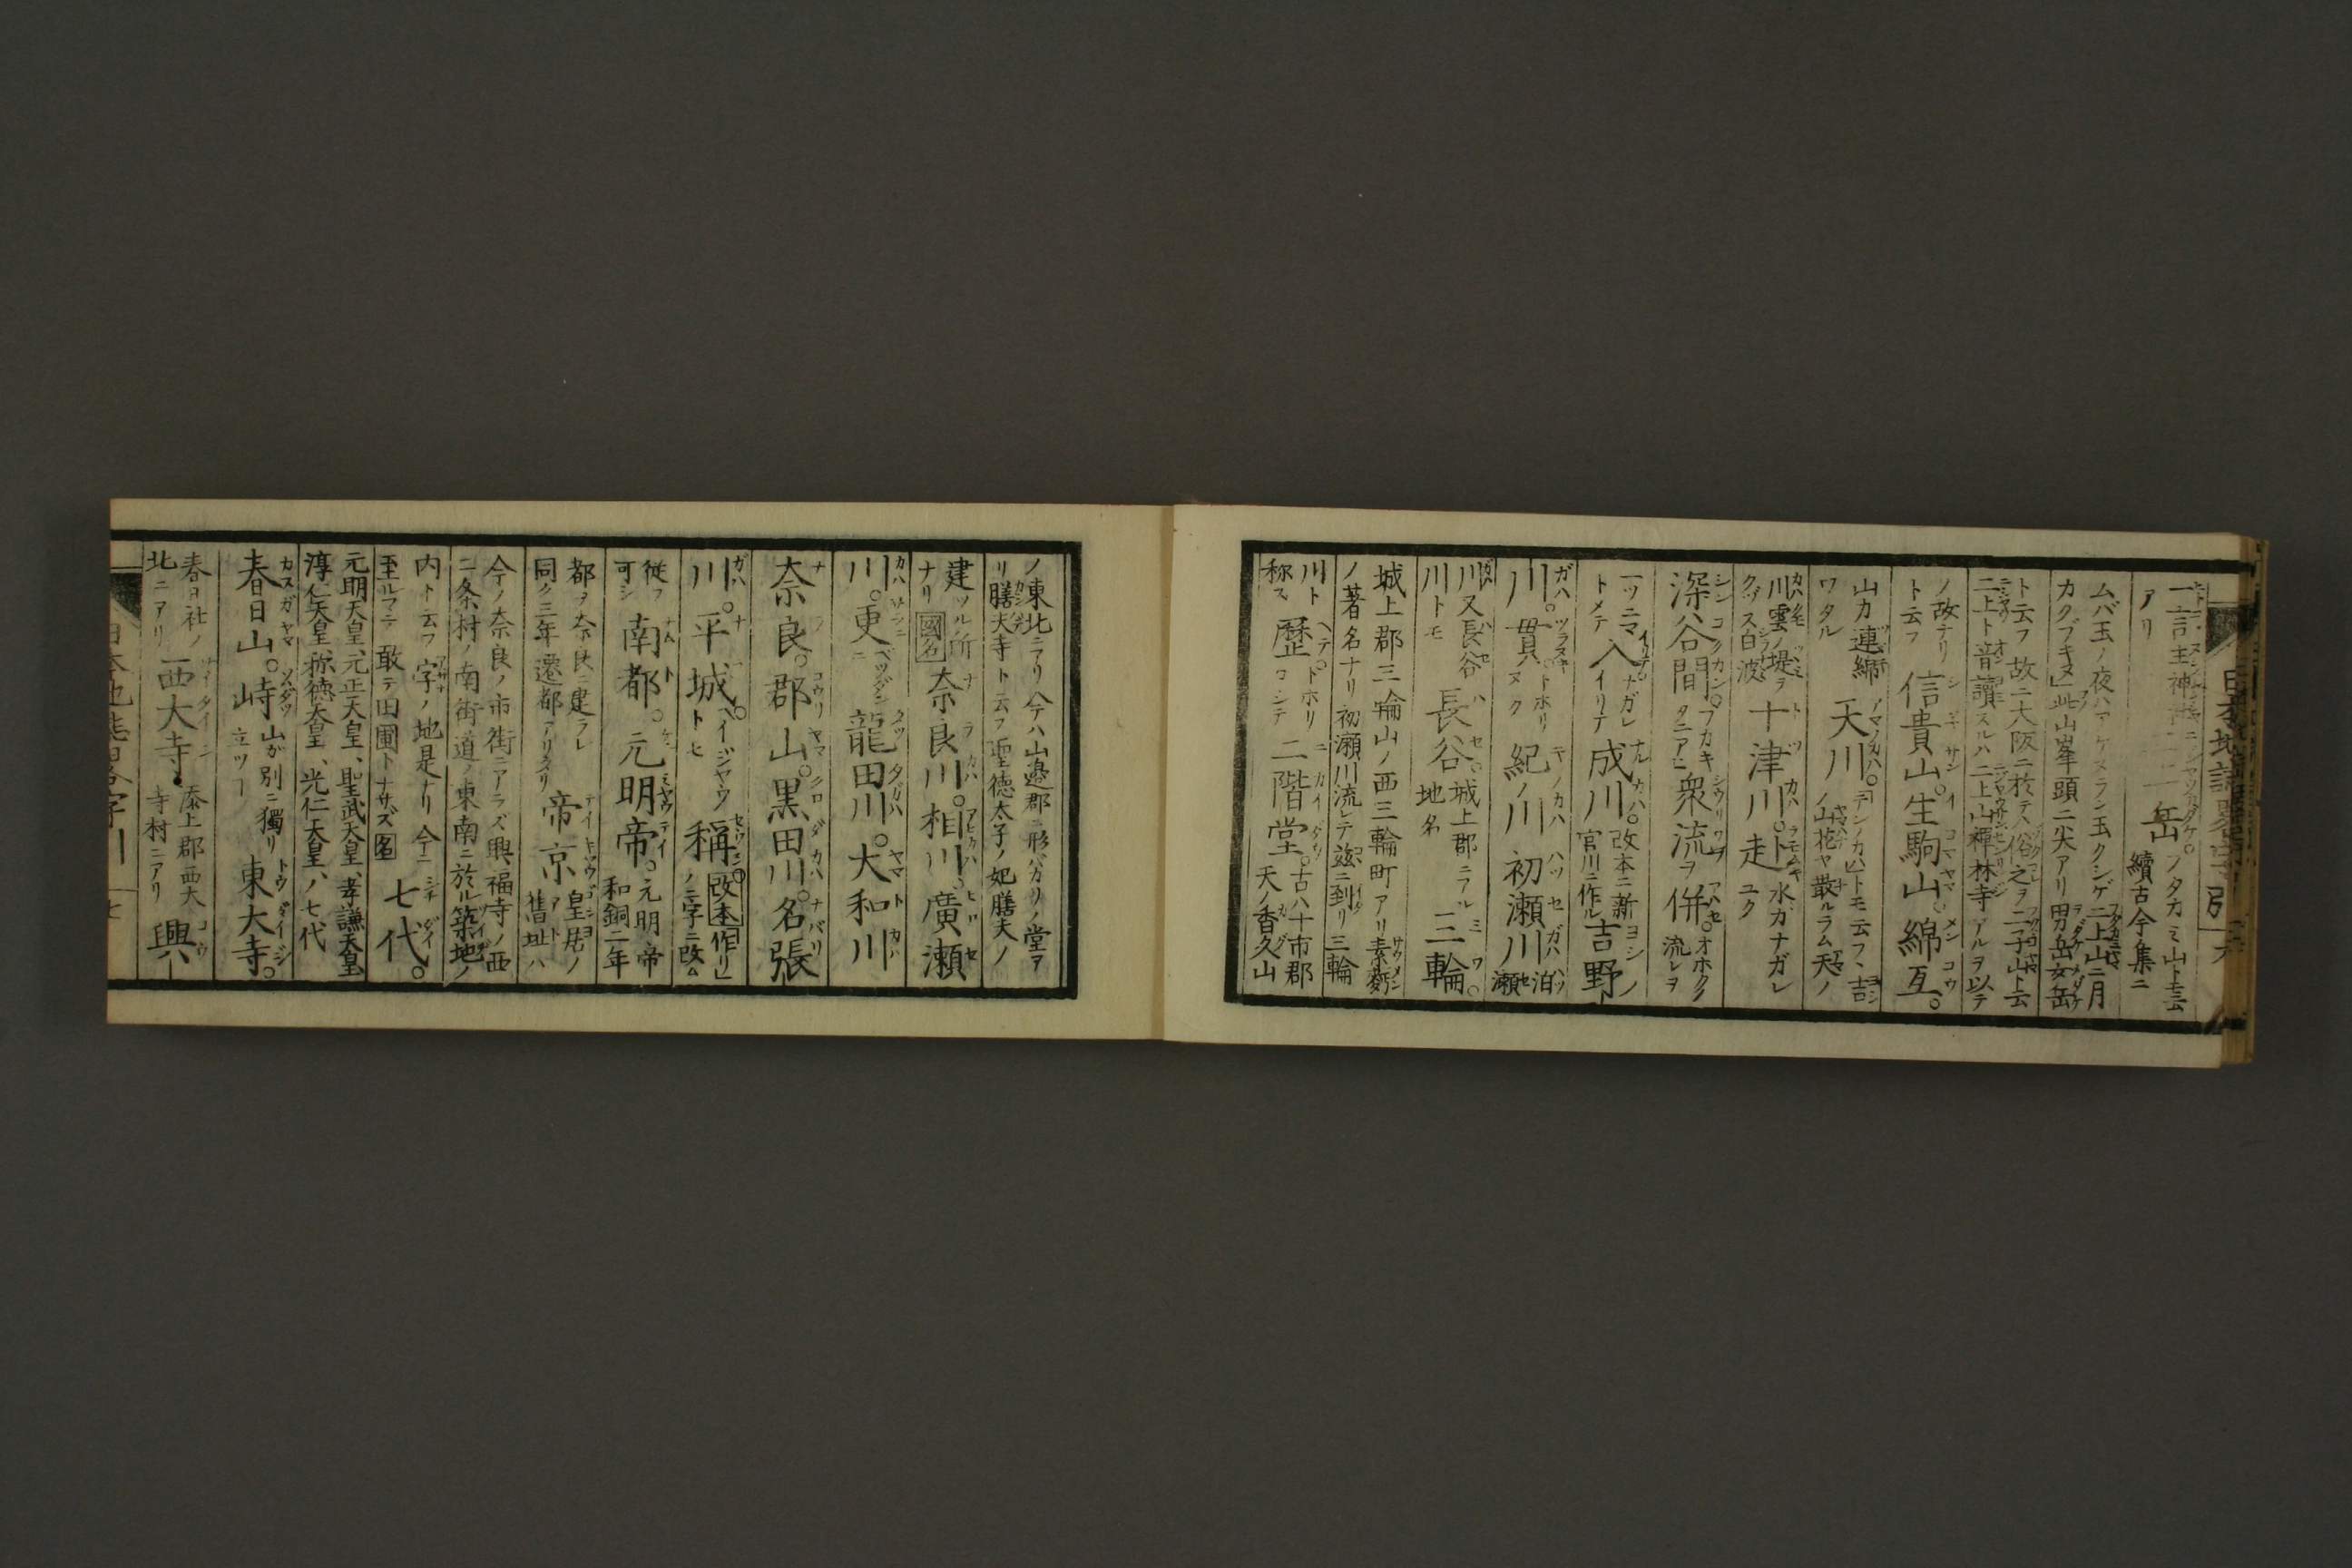 一言主神
アリ
岳。ノタカミ山ト云
續古今集ニ
ムバ玉ノ夜ハアケヌラン玉クシゲ二上山ニ月
カタブキヌ」此山峯頭ニ尖アリ男岳女岳
ト云フ故ニ大阪ニ於テハ俗之ヲ二子山ト云
二上ト音讀スルハ二上山禪林寺アルヲ以テ
ノ故ナリ
ト云フ
信貴山。生駒山。綿亙。
山カ連綿
ワタル
天川。テンノカハトモ云フ、吉
ノ山花ヤ散ルラム天ノ
川雲ノ堤ヲ
クヅス白波
十津川。走
水ガナガレ
ユク
深谷間。フカキ
タニアヒ
衆流ヲ併。オホクノ
流レヲ
一ツニマ
トメテ
入ナガレ
イリテ
成川。改本ニ新
官川ニ作ル
吉野
川。貫トホリ
ノヌク
紀ノ川 初瀬川泊
瀬
川又長谷
川トモ
長谷。城上郡ニアル
地名
三輪。
城上郡三輪山ノ西三輪町アリ素麪
ノ著名ナリ初瀬川流レテ茲ニ到リ三輪
川ト
称ス
歴。ドホリ
コシテ
二階堂。古ハ十市郡
天ノ香久山
ノ東北ニアリ今ハ山邉郡ニ形バカリノ堂ア
リ膳夫寺ト云フ聖徳太子ノ妃膳夫ノ
建ツル所
ナリ
國名
奈良川。相川。廣瀬
川。更ニ龍田川。大和川
奈良。郡山。黒田川。名張
川。平城。ヘイジヤウ
トヒ
稱。改本作リ」
ノ二字ニ改ム
従フ
可シ
南都。元明帝。元明帝
和銅二年
都ヲ奈良ニ建ラレ
同ク三年遷都アリタリ
帝京皇居ノ
舊址ハ
今ノ奈良ノ市街ニアラズ興福寺ノ西
二条村ノ南街道ノ東南ニ於ル築地ノ
内ト云フ字ノ地是ナリ今ニ
至ルマテ敢テ田圃トナサズ名
七代。
元明天皇、元正天皇、聖武天皇、孝謙天皇
淳仁天皇、称徳天皇、光仁天皇、ノ七代
春日山。峙山ガ別ニ獨リ
立ツ
東大寺。
春日社ノ
北ニアリ
西大寺。添上郡西大
寺村ニアリ
興